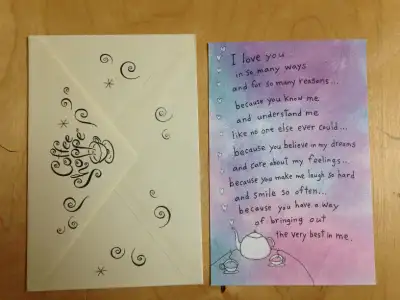 Coffee
Shoppe
I love you
in so many ways
and for so many reasons...
because you know me
and understand me
like no one else ever could...
because you believe in my dreams
and care about my feelings...
because you make me laugh so hard
and smile so often...
because you have a way
of bringing out
the very best in me.